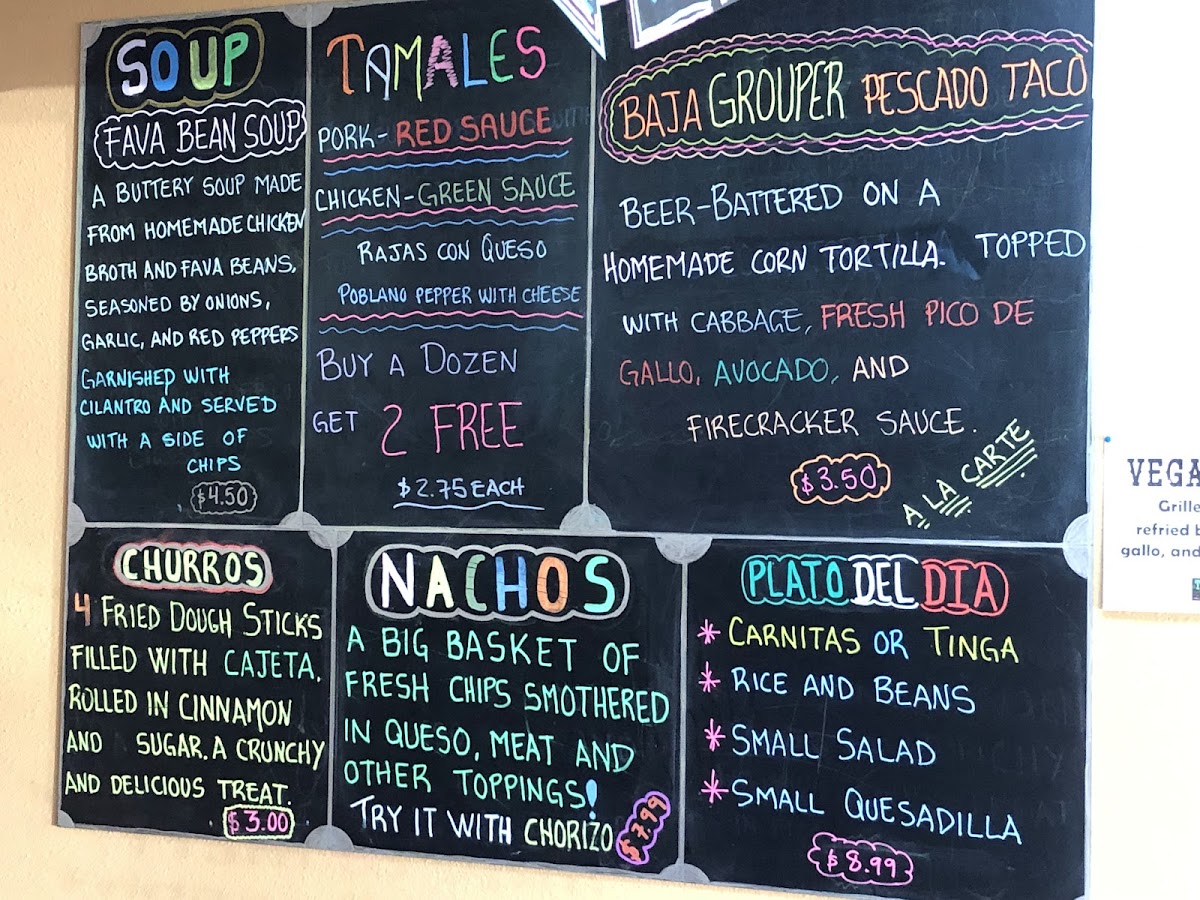 SOUP
FAVA BEAN SOUP
A BUTTERY SOUP MADE
FROM HOMEMADE CHICKEN
BROTH AND FAVA BEANS,
SEASONED BY ONIONS,
GARLIC, AND RED PEPPERS
GARNISHED WITH
CILANTRO AND SERVED
WITH A SIDE OF
CHIPS
$4.50
TAMALES
PORK-RED SAUCE
CHICKEN-GREEN SAUCE
RAJAS CON QUESO
POBLANO PEPPER WITH CHEESE
BUY A DOZEN
GET 2 FREE
$2.75 EACH
BAJA GROUPER PESCADO TACO
BEER-BATTERED ON A
HOMEMADE CORN TORTILLA. TOPPED
WITH CABBAGE, FRESH PICO DE
GALLO, AVOCADO, AND
FIRECRACKER SAUCE.
$3.50
A LA CARTE
CHURROS
4 FRIED DOUGH STICKS
FILLED WITH CAJETA.
ROLLED IN CINNAMON
AND SUGAR. A CRUNCHY
AND DELICIOUS TREAT.
$3.00
NACHOS
A BIG BASKET OF
FRESH CHIPS SMOTHERED
IN QUESO, MEAT AND
OTHER TOPPINGS!
TRY IT WITH CHORIZO
$7.99
PLATO DEL DIA
* CARNITAS OR TINGA
* RICE AND BEANS
* SMALL SALAD
* SMALL QUESADILLA
$8.99
VEGA
Grille
refried b
gallo, and